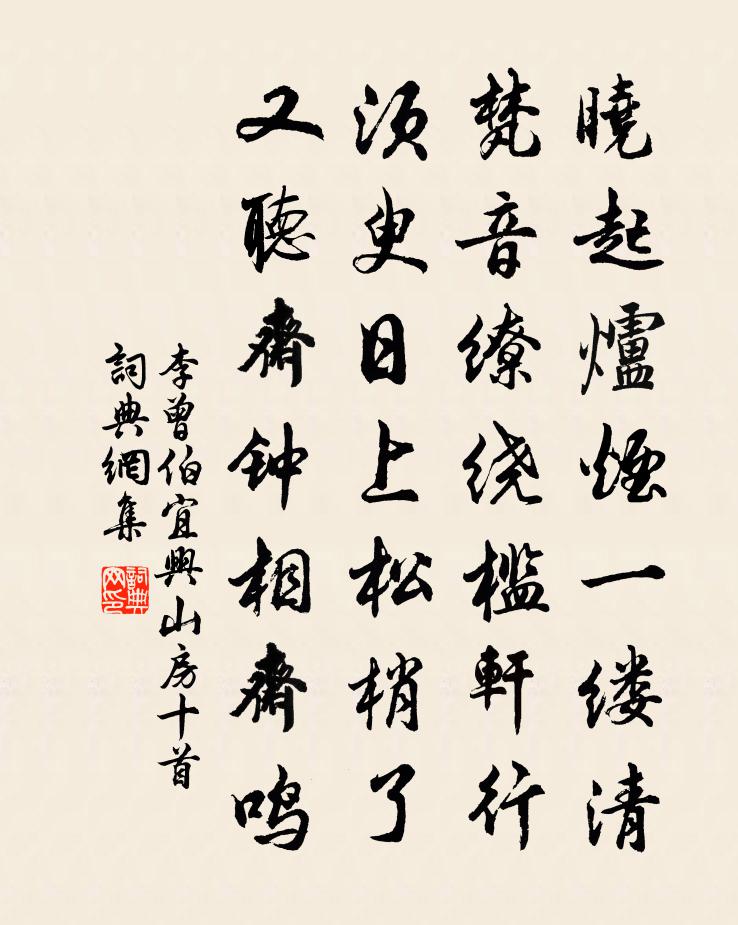 曉起爐煙一缕清
梵音缭绕檻軒行
須臾日上松梢了
又聽齋钟相齋鸣
李曾伯宜興山房十首
詞典網集
詞典网印